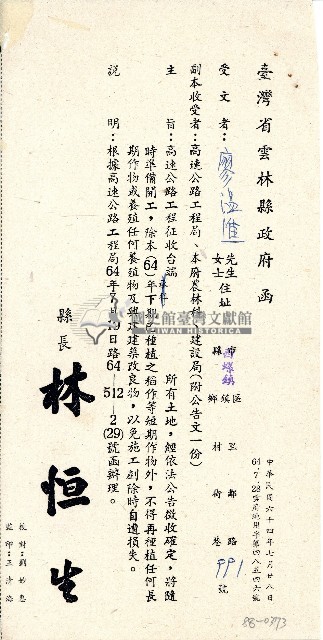 臺灣省雲林縣政府函
受文者：廖溫淮 先生 女士 住址 縣市 西螺鎮 鄉鎮區 村里 街路 巷鄰 991號
中華民國六十四年七月廿八日
副本收受者：高速公路工程局、本府農林科、建設局（附公告文一份）
主旨：高速公路工程征收台端 所有土地，經依法公告徵收確定，將隨
時準備開工，除本(64)年下期已種植之稻作等短期作物外，不得再種植任何長
期作物或養殖任何養殖物及興建建築改良物，以免施工剷除時自遭損失。
說明：根據高速公路工程局64年7月19日路64—512—2(29)號函辦理。
縣長 林恒生
88-0373
國史館臺灣文獻館
TAIWAN HISTORICA